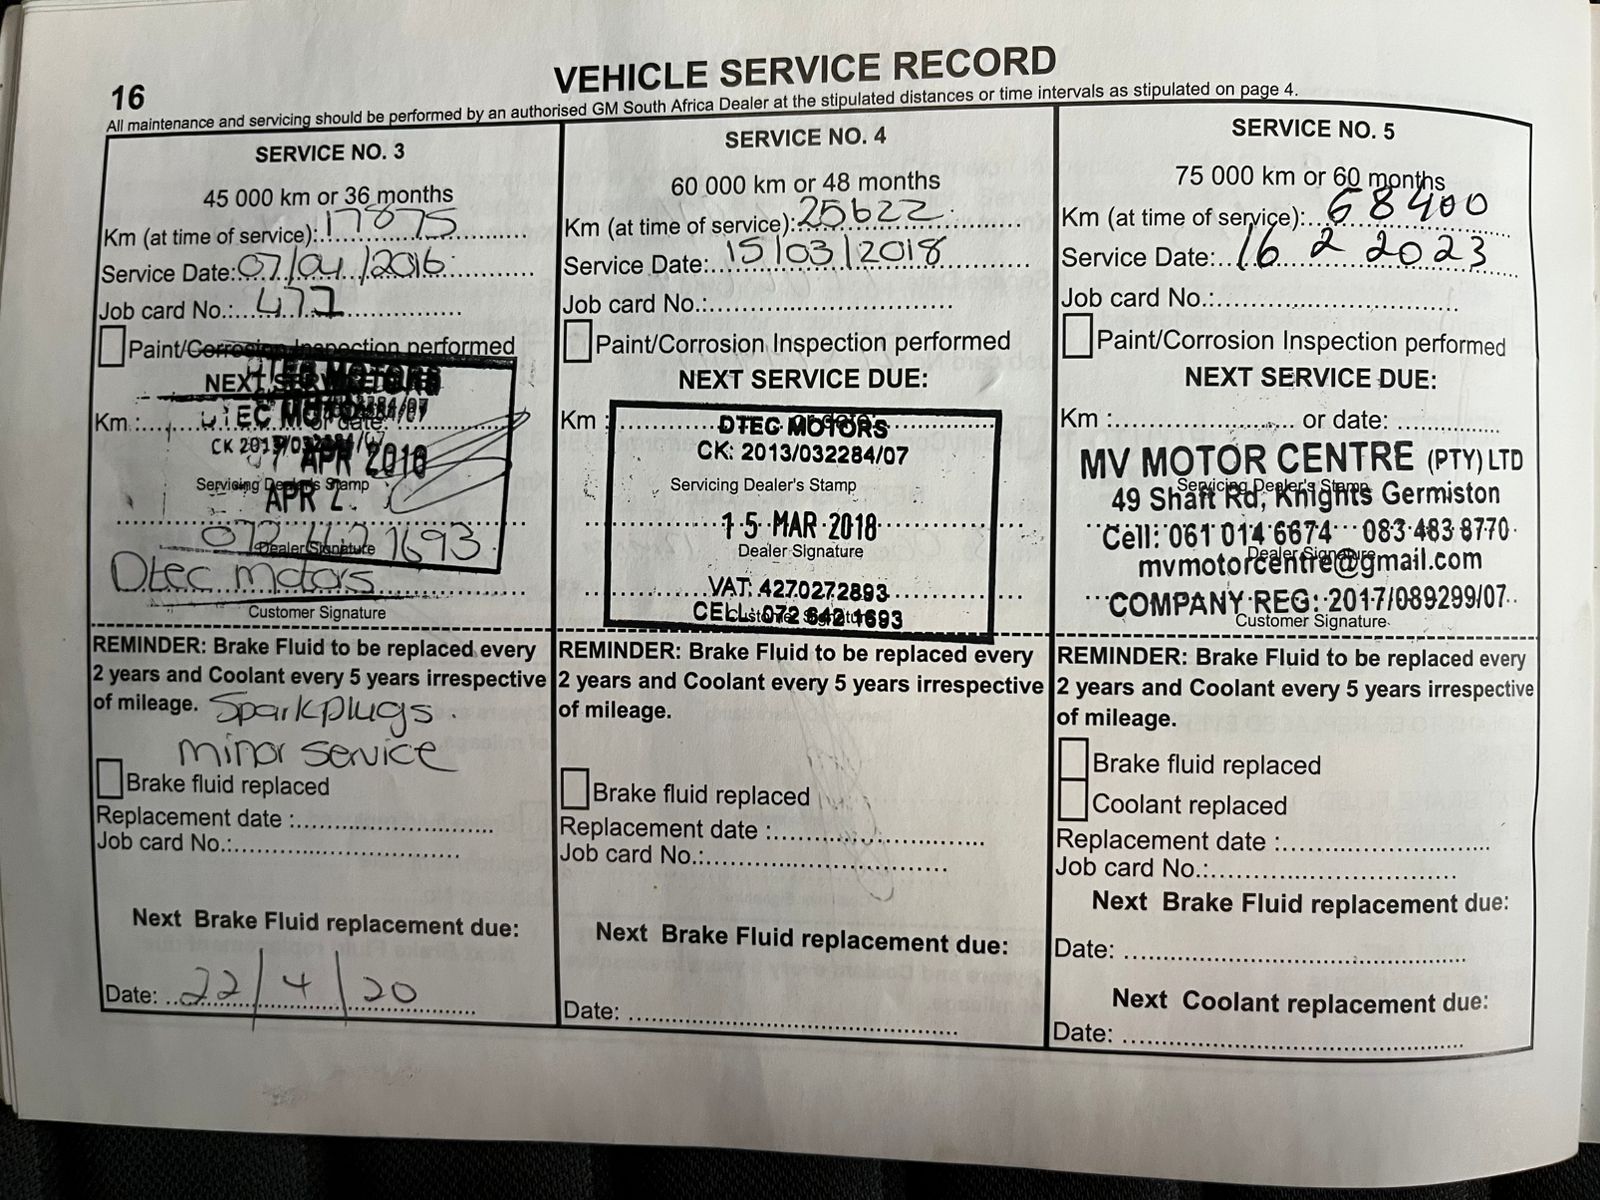 16
VEHICLE SERVICE RECORD
All maintenance and servicing should be performed by an authorised GM South Africa Dealer at the stipulated distances or time intervals as stipulated on page 4.
SERVICE NO. 3
45 000 km or 36 months
Km (at time of service): 17875
Service Date: 07/04/2016
Job card No.: 477
Paint/Corrosion Inspection performed
NEXT SERVICE DUE:
Km : or date:
DTEC MOTORS
CK 2013/032284/07
APR 2016
Servicing Dealer's Stamp
APR 2
072 642 1693
Dealer Signature
Dtec motors
Customer Signature
REMINDER: Brake Fluid to be replaced every
2 years and Coolant every 5 years irrespective
of mileage. Sparkplugs.
minor service
Brake fluid replaced
Replacement date :
Job card No.:
Next Brake Fluid replacement due:
Date: 22/4/20
SERVICE NO. 4
60 000 km or 48 months
Km (at time of service): 25622
Service Date: 15/03/2018
Job card No.:
Paint/Corrosion Inspection performed
NEXT SERVICE DUE:
Km : or date:
DTEC MOTORS
CK: 2013/032284/07
Servicing Dealer's Stamp
15 MAR 2018
Dealer Signature
VAT: 4270272893
CELL: 072 642 1693
Customer Signature
REMINDER: Brake Fluid to be replaced every
2 years and Coolant every 5 years irrespective
of mileage.
Brake fluid replaced
Replacement date :
Job card No.:
Next Brake Fluid replacement due:
Date:
SERVICE NO. 5
75 000 km or 60 months
Km (at time of service): 68400
Service Date: 16 2 2023
Job card No.:
Paint/Corrosion Inspection performed
NEXT SERVICE DUE:
Km : or date:
MV MOTOR CENTRE (PTY) LTD
Servicing Dealer's Stamp
49 Shaft Rd, Knights Germiston
Cell: 061 014 6674 083 483 8770
Dealer Signature
mvmotorcentre@gmail.com
COMPANY REG: 2017/089299/07
Customer Signature
REMINDER: Brake Fluid to be replaced every
2 years and Coolant every 5 years irrespective
of mileage.
Brake fluid replaced
Coolant replaced
Replacement date :
Job card No.:
Next Brake Fluid replacement due:
Date:
Next Coolant replacement due:
Date: